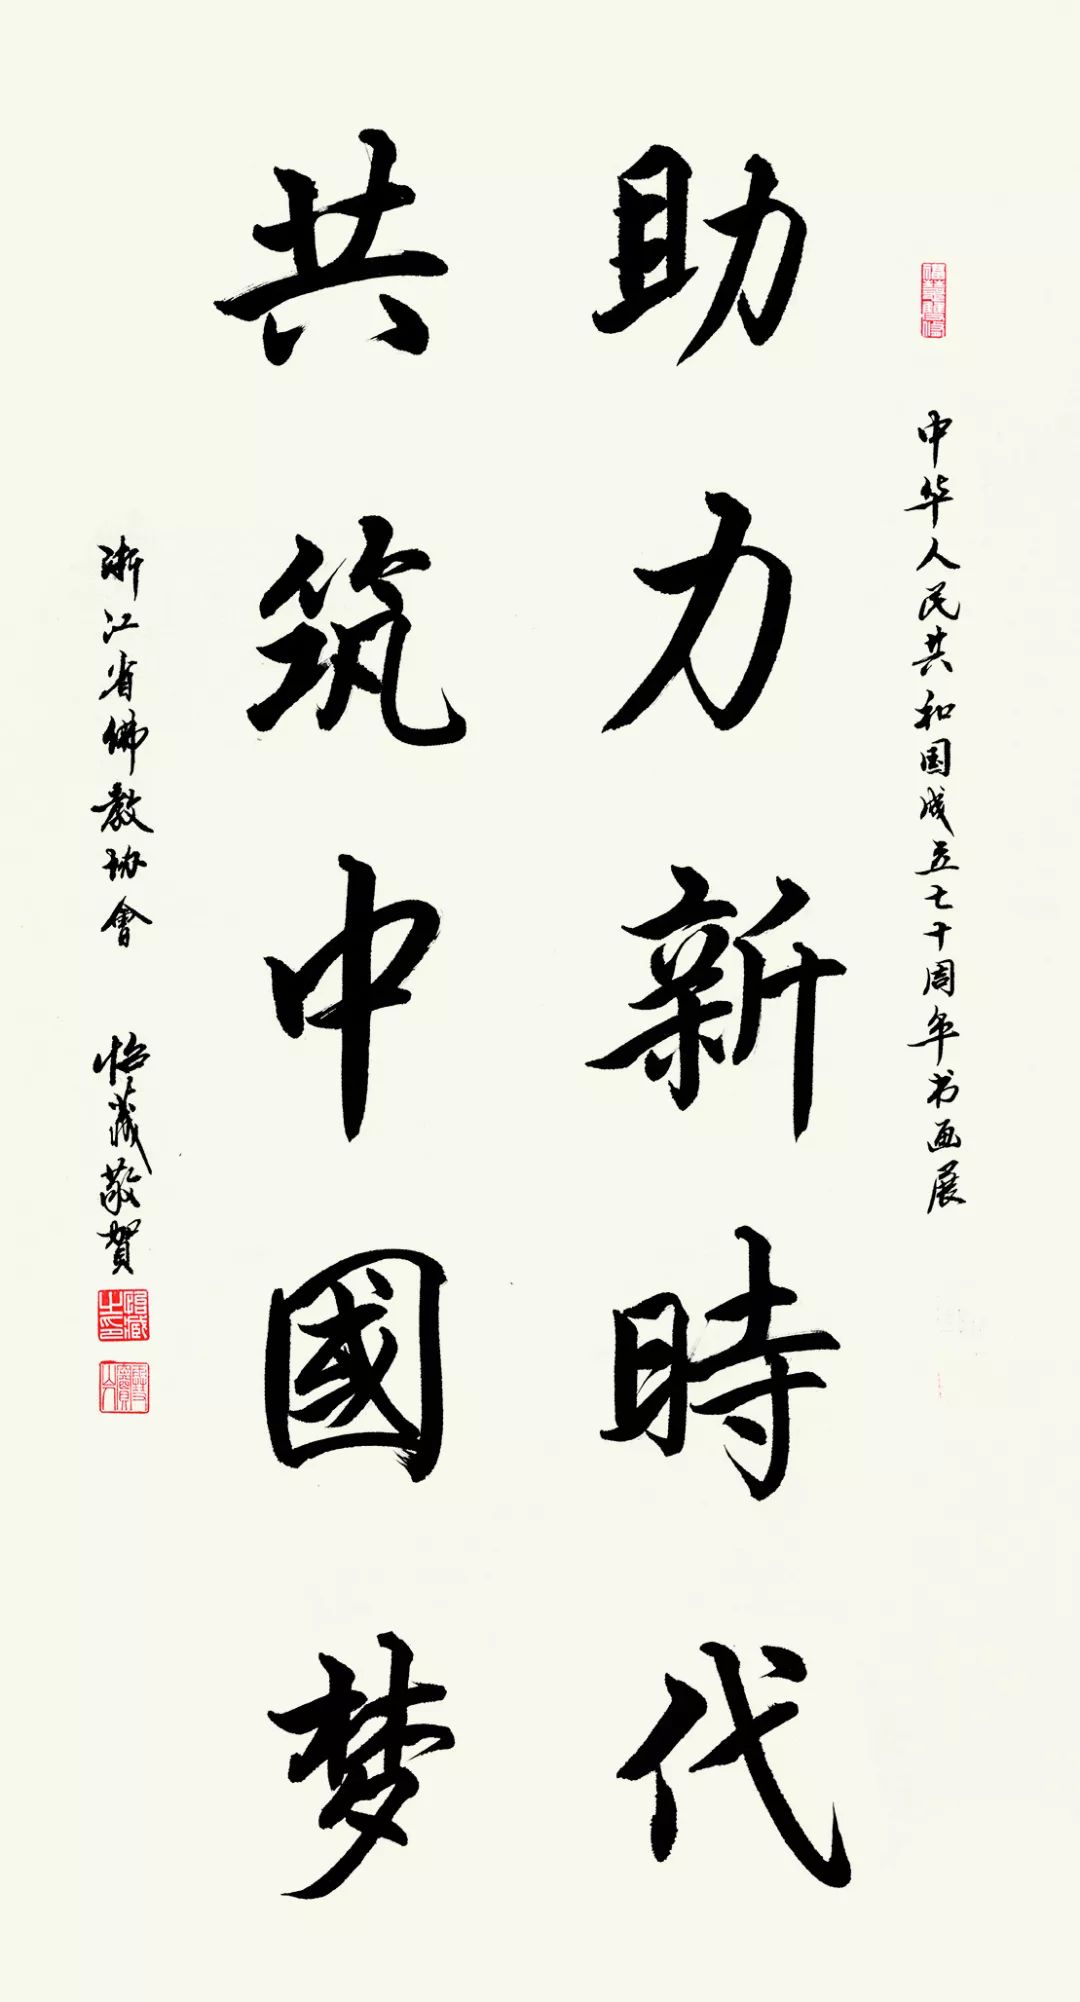 中华人民共和国成立七十周年书画展
助力新時代
共筑中國梦
浙江省佛教协會 怡藏敬贺
怡藏之印